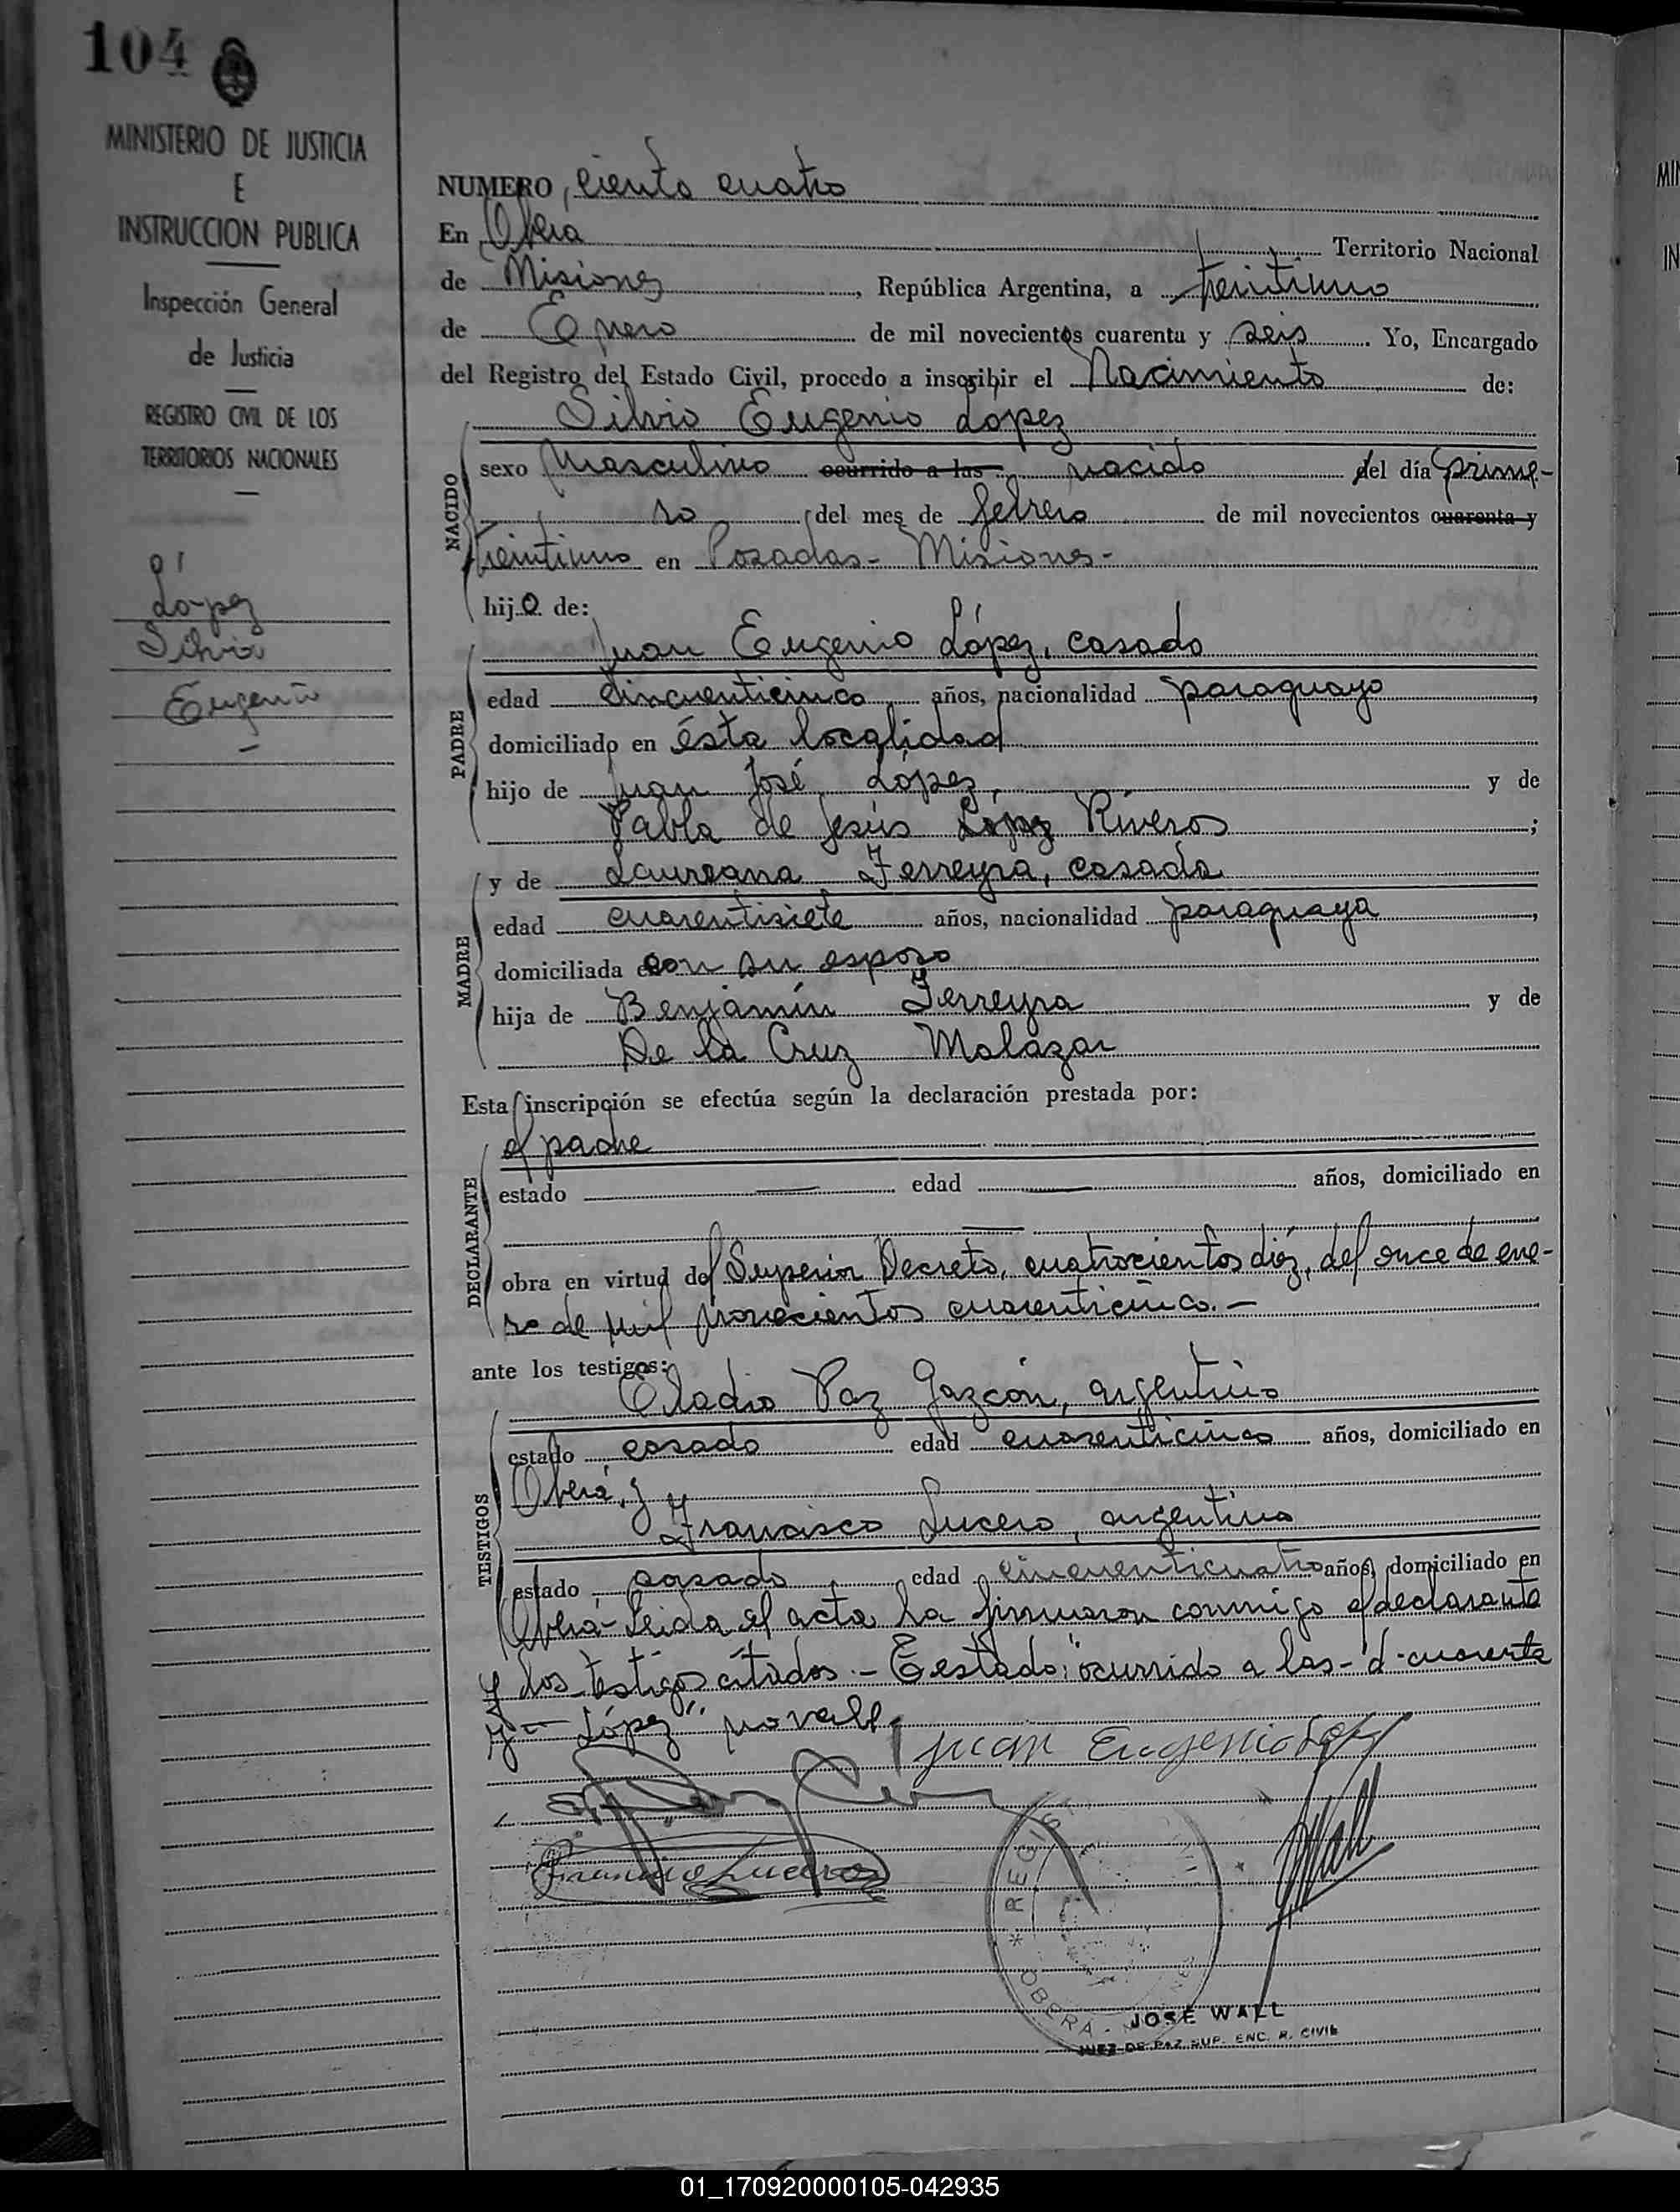 104
MINISTERIO DE JUSTICIA
E
INSTRUCCION PUBLICA
Inspección General
de Justicia
REGISTRO CIVIL DE LOS
TERRITORIOS NACIONALES
López
Silvio
Eugenio
NUMERO, ciento cuatro
En Oberá Territorio Nacional
de Misiones, República Argentina, a treintiuno
de Enero de mil novecientos cuarenta y seis. Yo, Encargado
del Registro del Estado Civil, procedo a inscribir el Nacimiento de:
Silvio Eugenio Lopez
NACIDO
sexo Masculino ocurrido a las nacido del día prime-
ro del mes de febrero de mil novecientos cuarenta y
treintiuno en Posadas - Misiones -
hijo de:
Juan Eugenio López, casado
PADRE
edad cincuenticinco años, nacionalidad paraguayo,
domiciliado en ésta localidad
hijo de Juan José López, y de
Pabla de Jesús López Riveros;
y de Laureana Ferreyra, casada
MADRE
edad cuarentisiete años, nacionalidad paraguaya,
domiciliada con su esposo
hija de Benjamín Ferreyra y de
De la Cruz Molazar
Esta inscripción se efectúa según la declaración prestada por:
el padre
DECLARANTE
estado — edad — años, domiciliado en
—
obra en virtud del Superior Decreto, cuatrocientos diéz, del once de ene-
ro de mil novecientos cuarenticinco. -
ante los testigos:
Eladio Paz Gazcón, argentino
TESTIGOS
estado casado edad cuarenticinco años, domiciliado en
Oberá, y
Francisco Lucero, argentino
estado casado edad cincuenticuatro años, domiciliado en
Oberá - Leida el acta la firmaron conmigo el declarante
y los testigos citados. - Testado: "ocurrido a las - d - cuarenta
y - López" no vale.
Juan Eugenio López
Francisco Lucero
Wall
REGIST
OBERA
JOSÉ WALL
JUEZ DE PAZ SUP. ENC. R. CIVIL
01_170920000105-042935